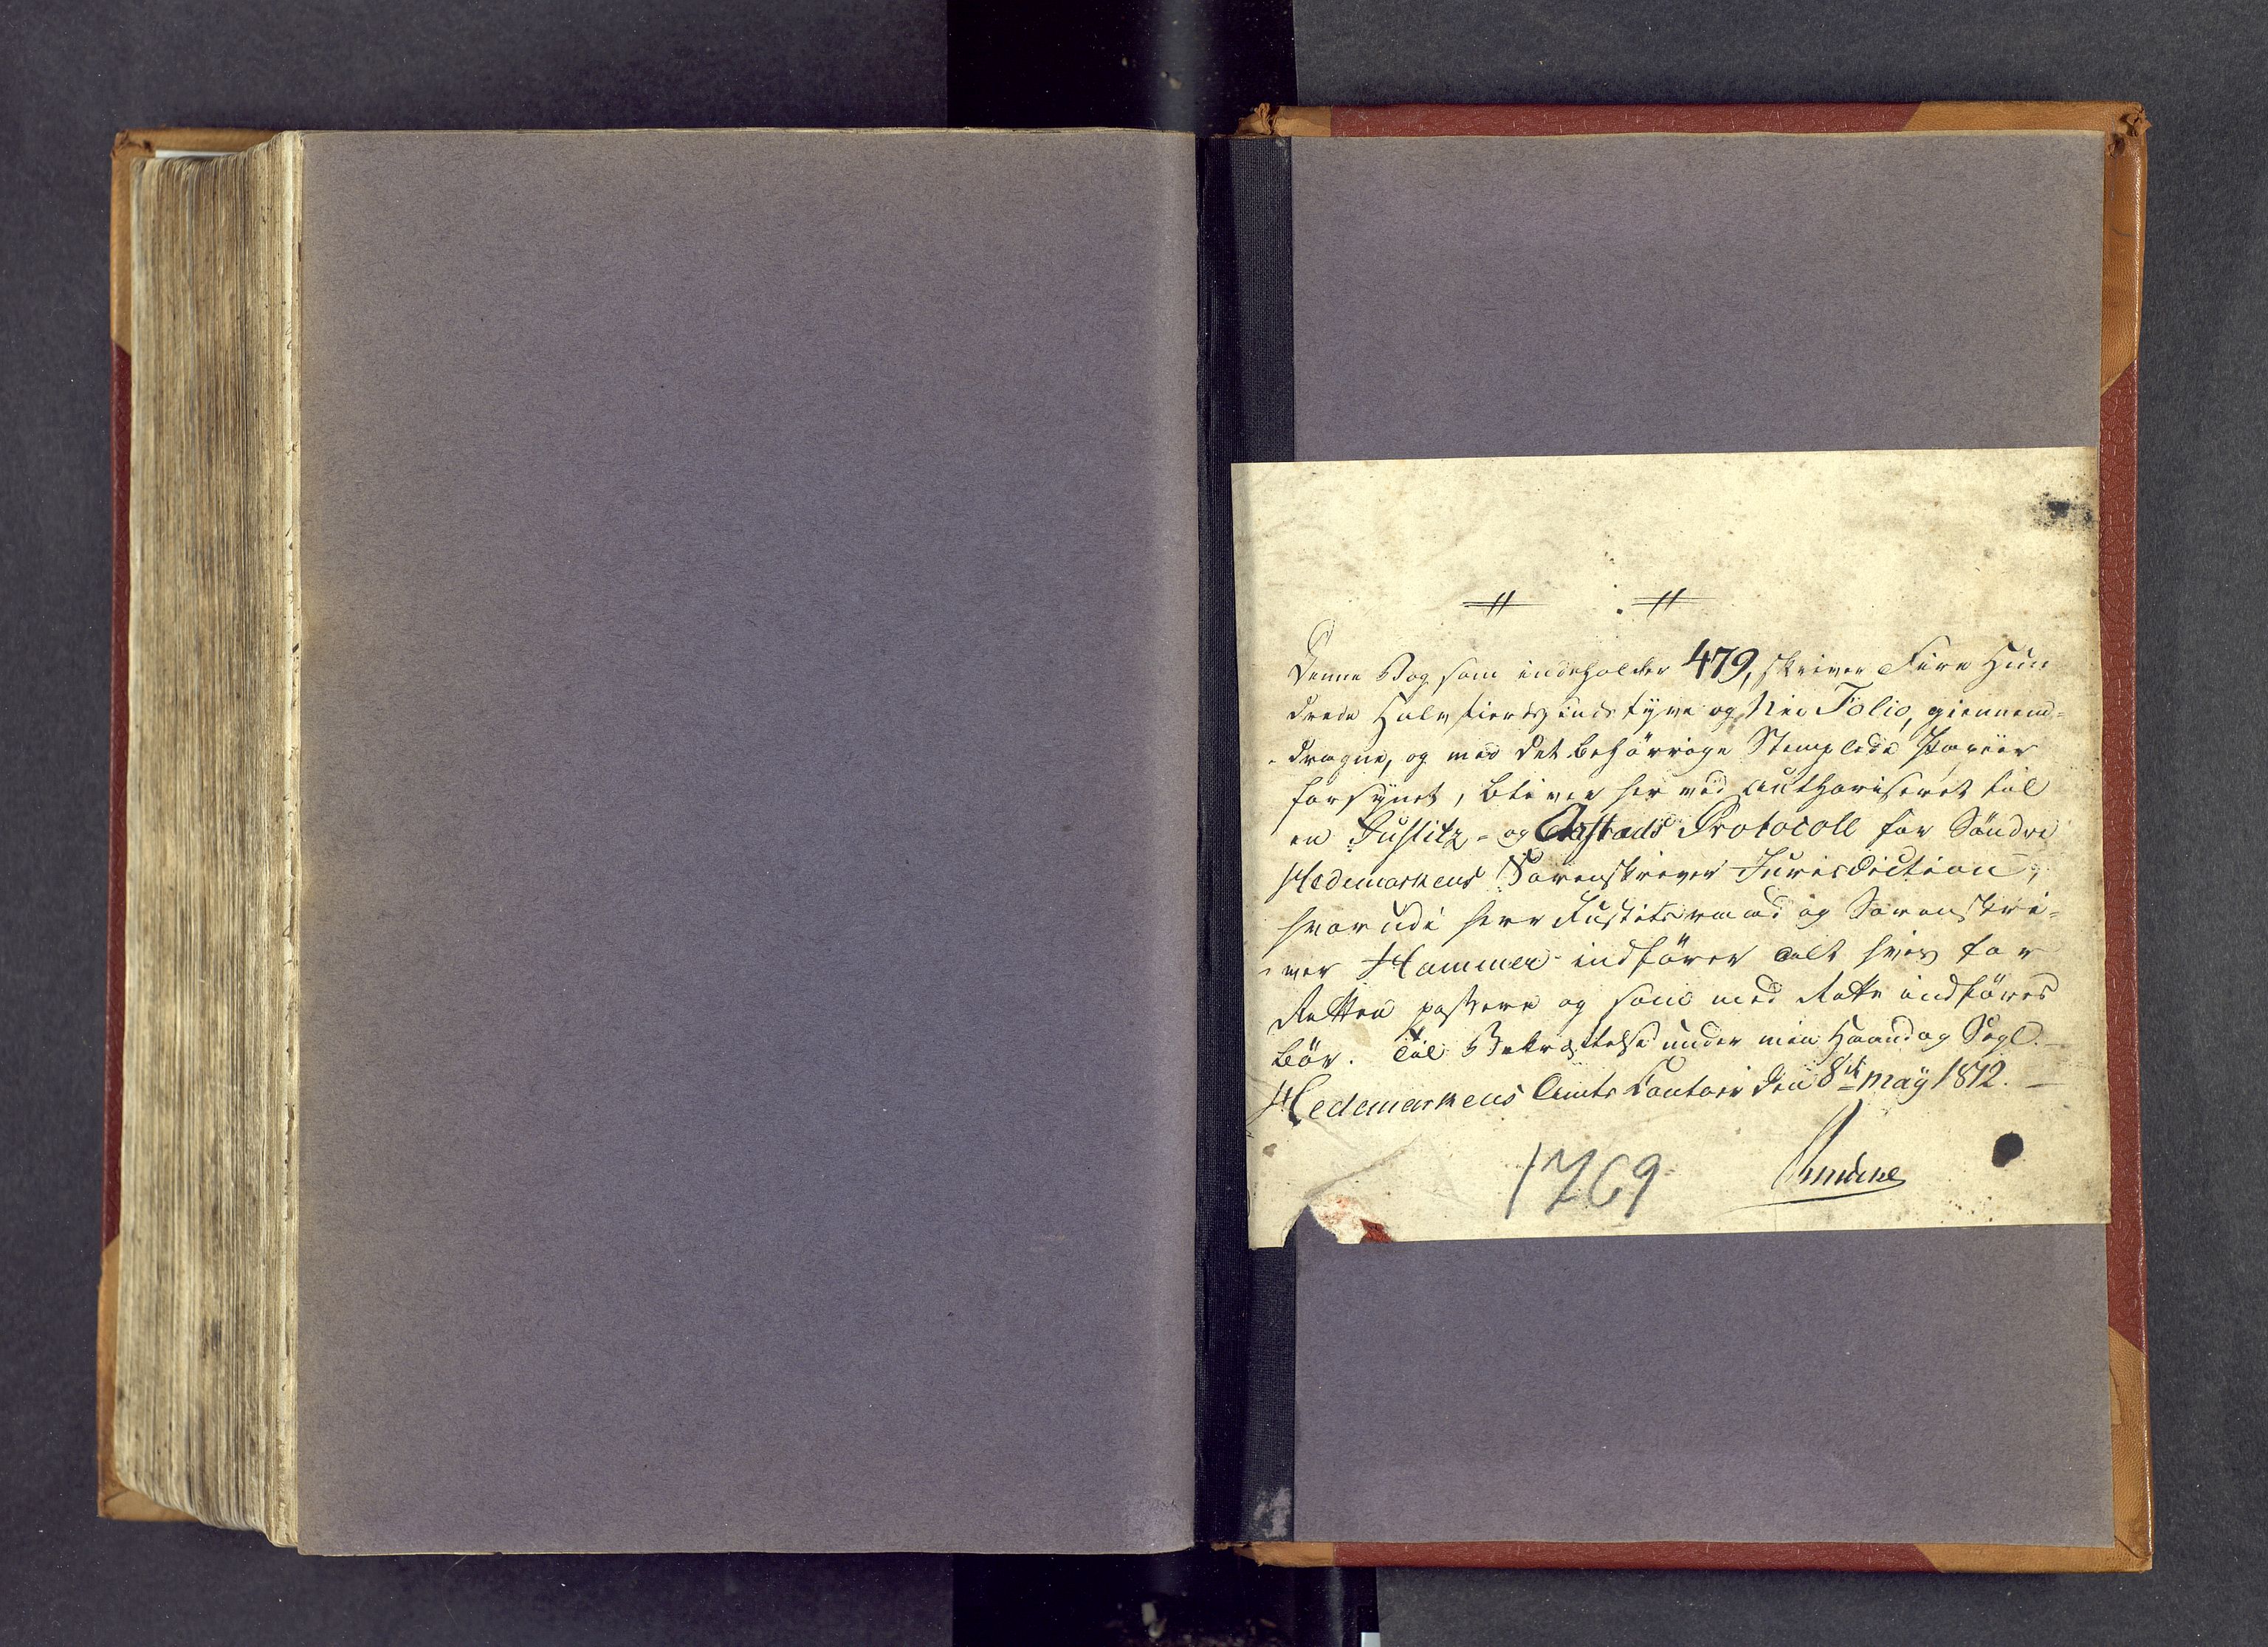 Denne Bog som indeholder 479, skriver Fire Hun
drede Halvfierdesindstyve og Nie Folio, giennem-
dragne, og med det behörrige Stemplede Papiir
forsynet, bliver her ved authoriseret til
en Justitz- og Aastæds Protocoll for Söndre
Hedemarkens Sorenskriver Jurisdiction,
hvorudi herr Justitsraad og Sorenskri-
ver Hammer indförer alt hvis for
Retten passere og som med Rette indföres
bör. Til Bekræftelse under min Haand og Segl. -
Hedemarkens Amts Contoir den 8de May 1812. -
1769